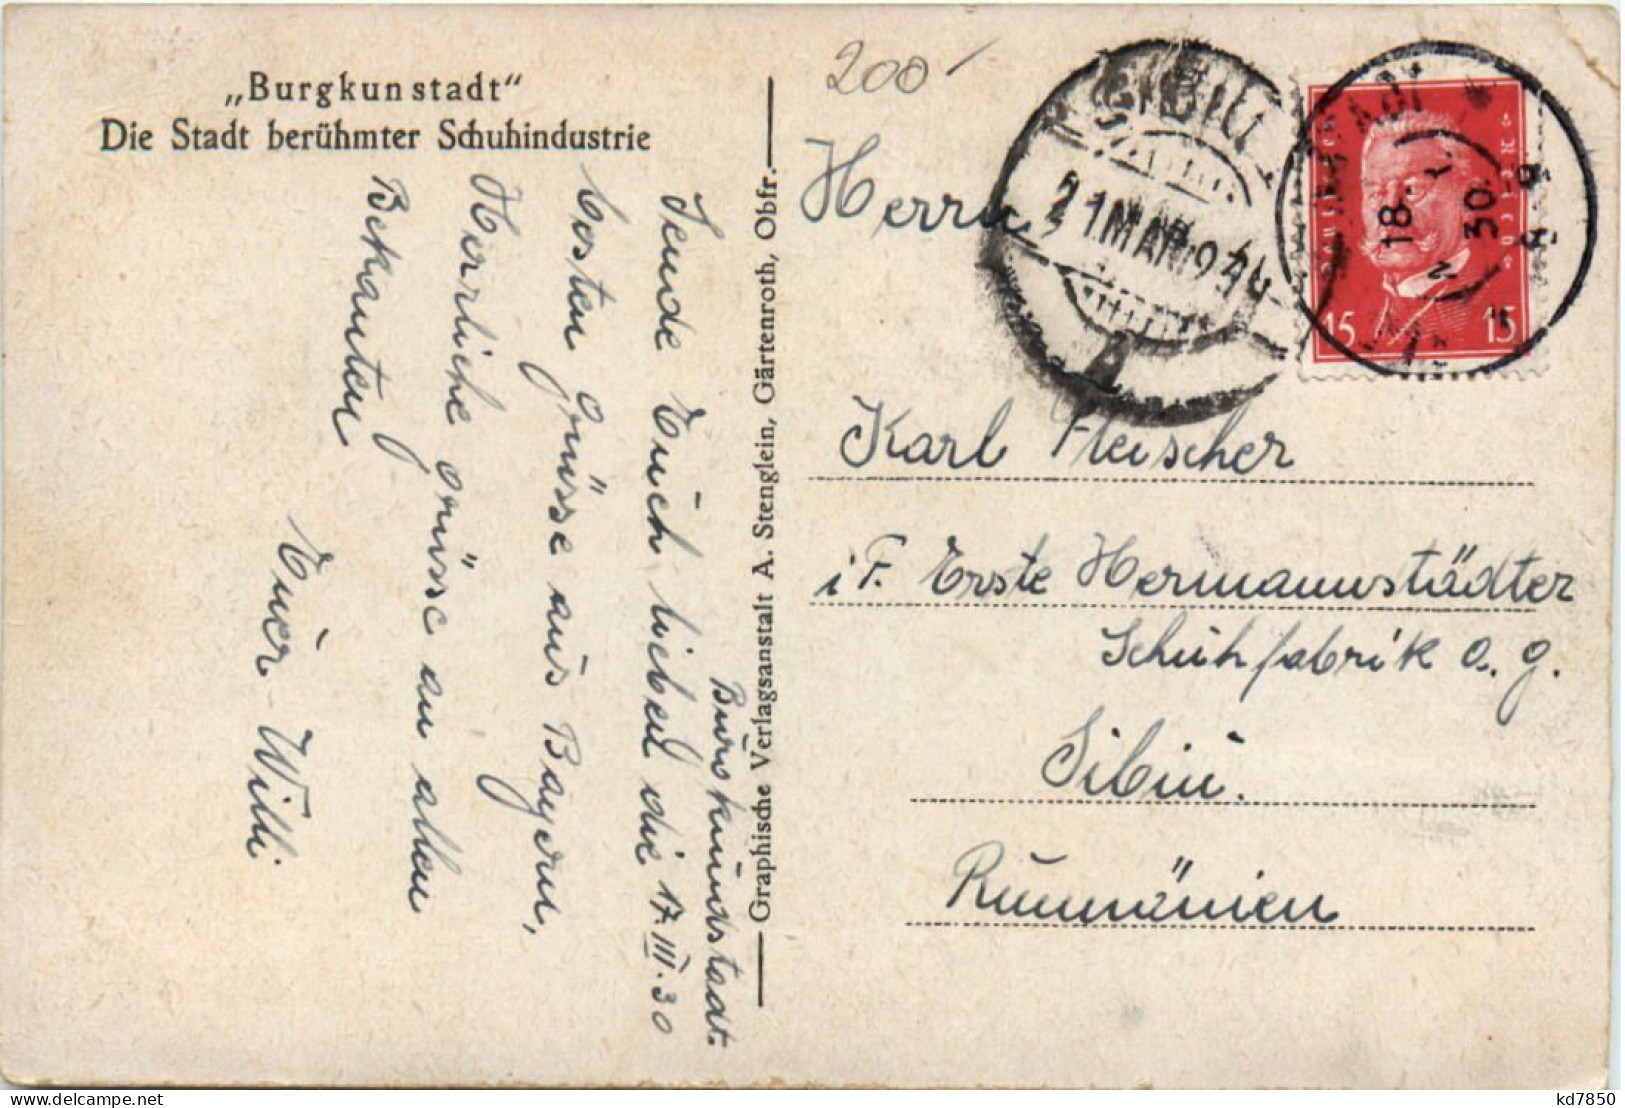 „Burgkunstadt“
Die Stadt berühmter Schuhindustrie
Burkkundstadt.
17.III.30
Sende Euch lieben die
besten grüsse aus Bayern,
Herrliche grüsse an allen
Bekannten
Euer Willi
Graphische Verlagsanstalt A. Stenglein, Gärtenroth, Obfr.
200
SIBIU
21 MAR 93
18.
30.
15 15
Herrn
Karl Fleischer
i F. Erste Hermannstädter
Schuhfabrik A. g.
Sibiu.
Rumänien
kd7850